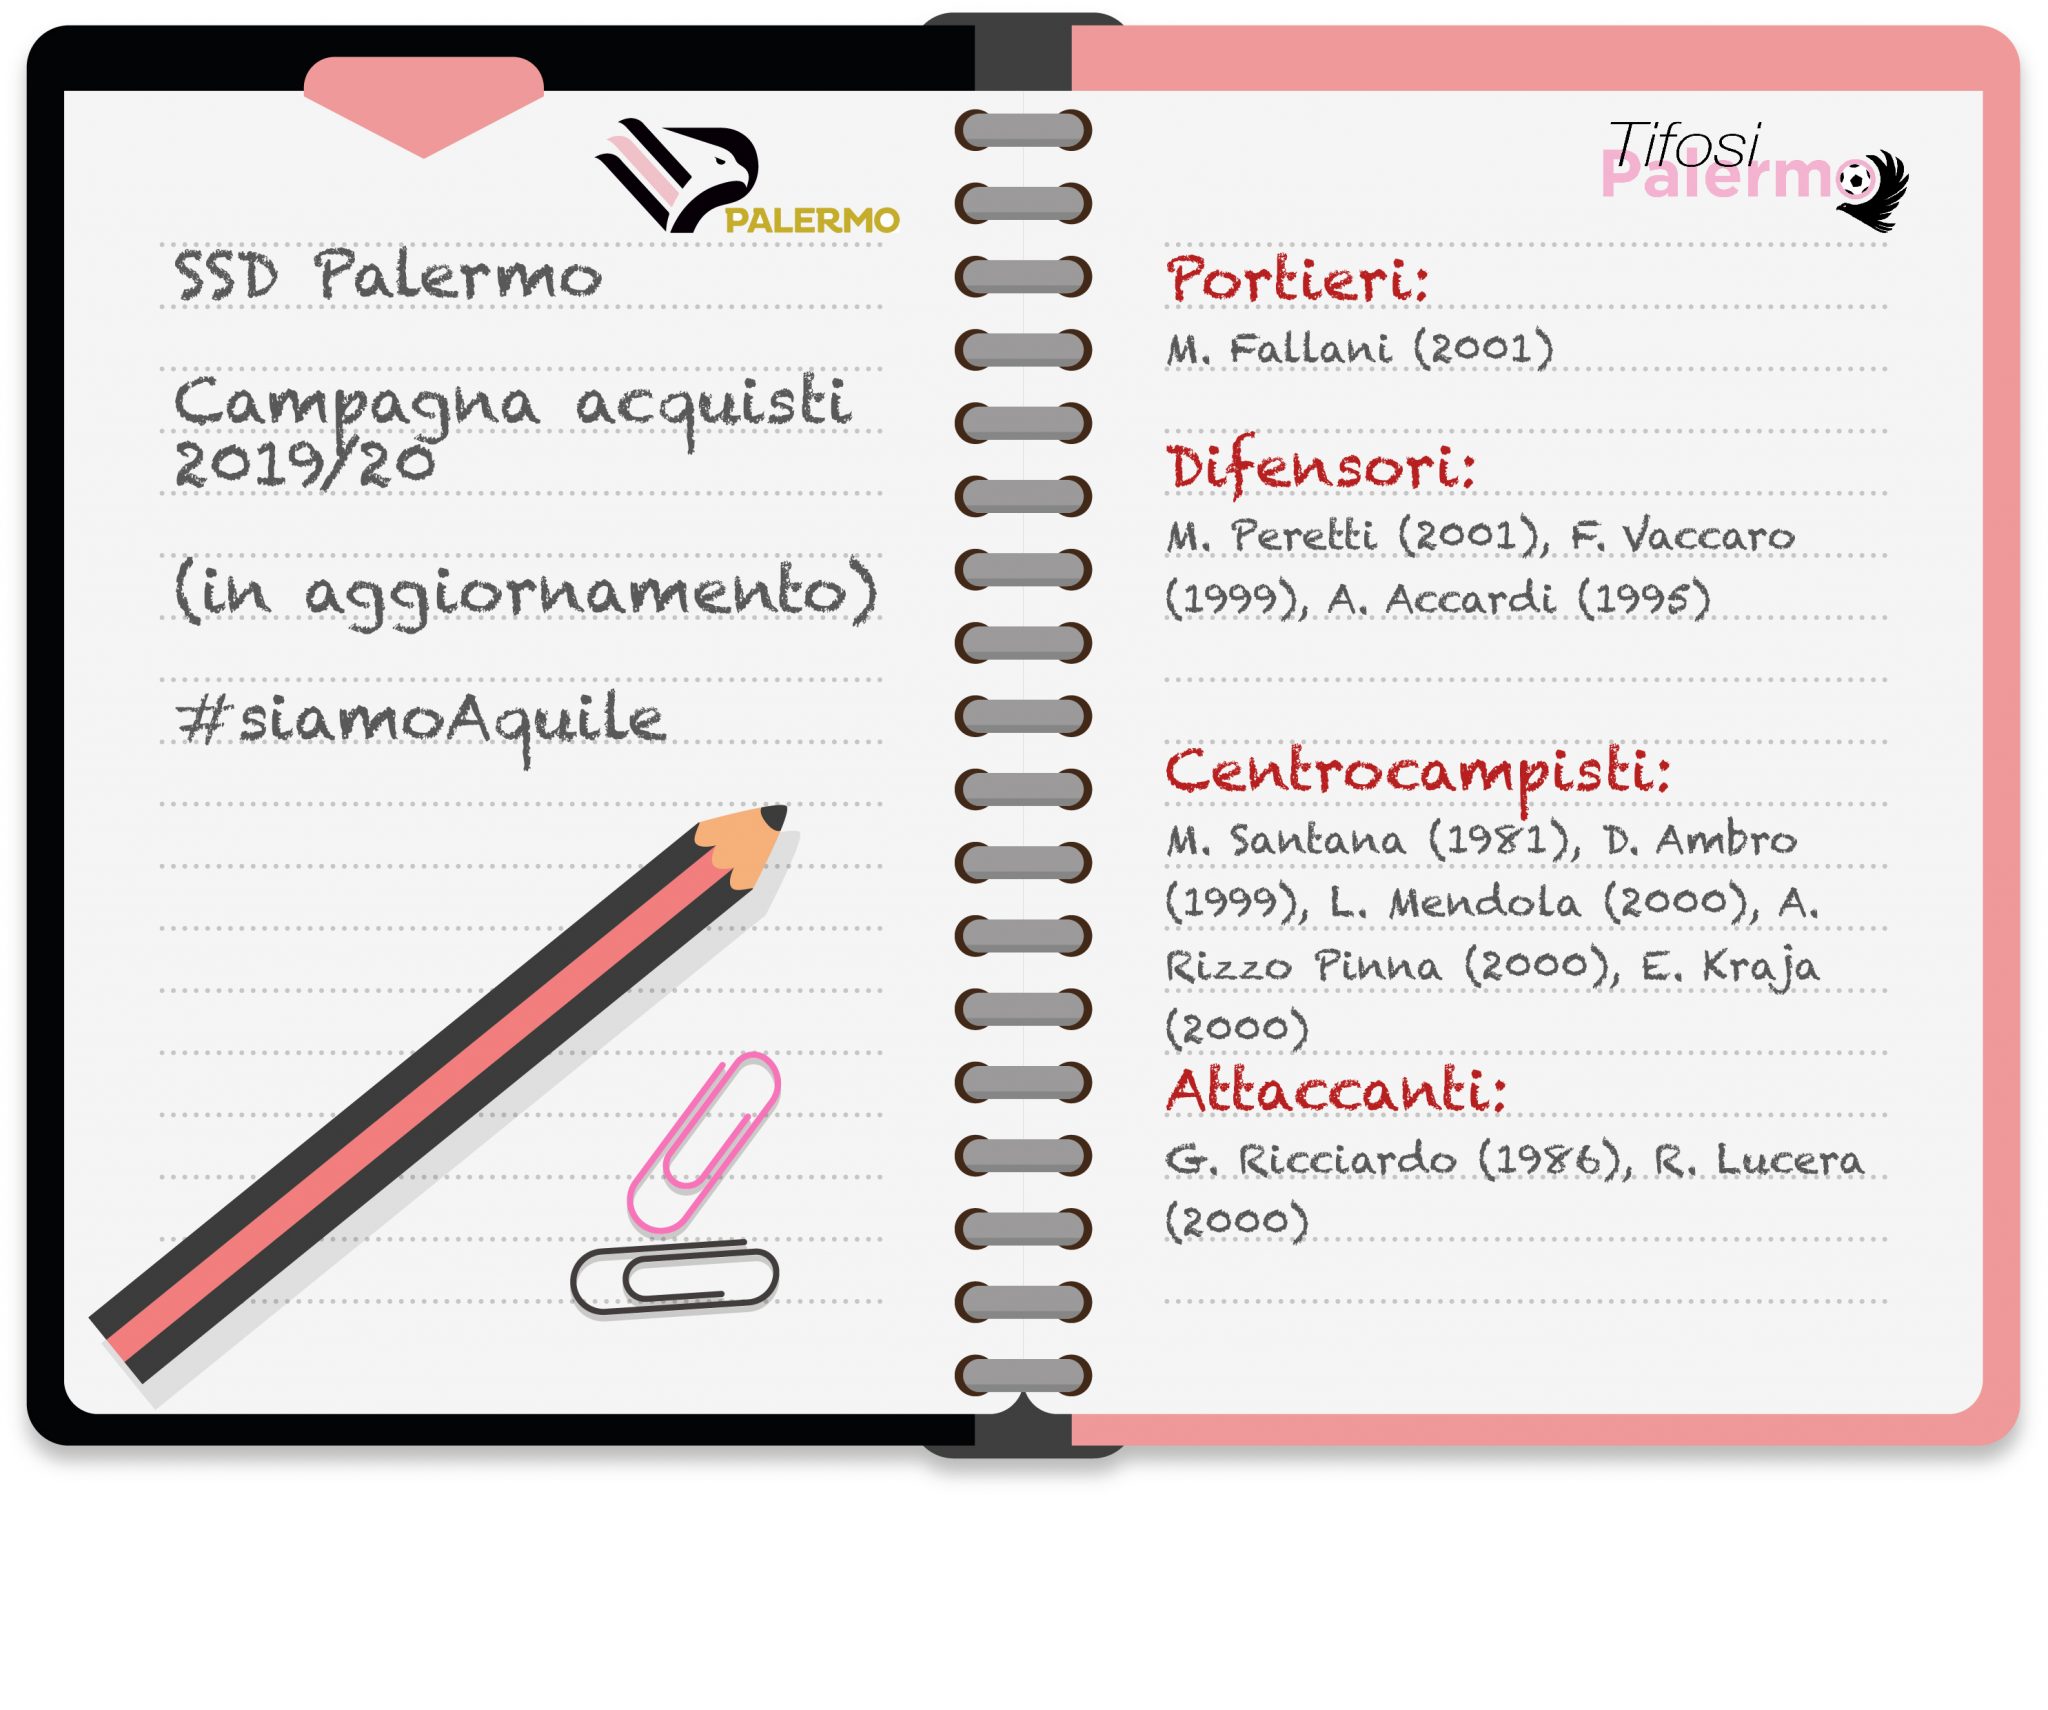 PALERMO
SSD Palermo
Campagna acquisti
2019/20
(in aggiornamento)
#siamoAquile
Tifosi
Palermo
Portieri:
M. Fallani (2001)
Difensori:
M. Peretti (2001), F. Vaccaro
(1999), A. Accardi (1995)
Centrocampisti:
M. Santana (1981), D. Ambro
(1999), L. Mendola (2000), A.
Rizzo Pinna (2000), E. Kraja
(2000)
Attaccanti:
G. Ricciardo (1986), R. Lucera
(2000)